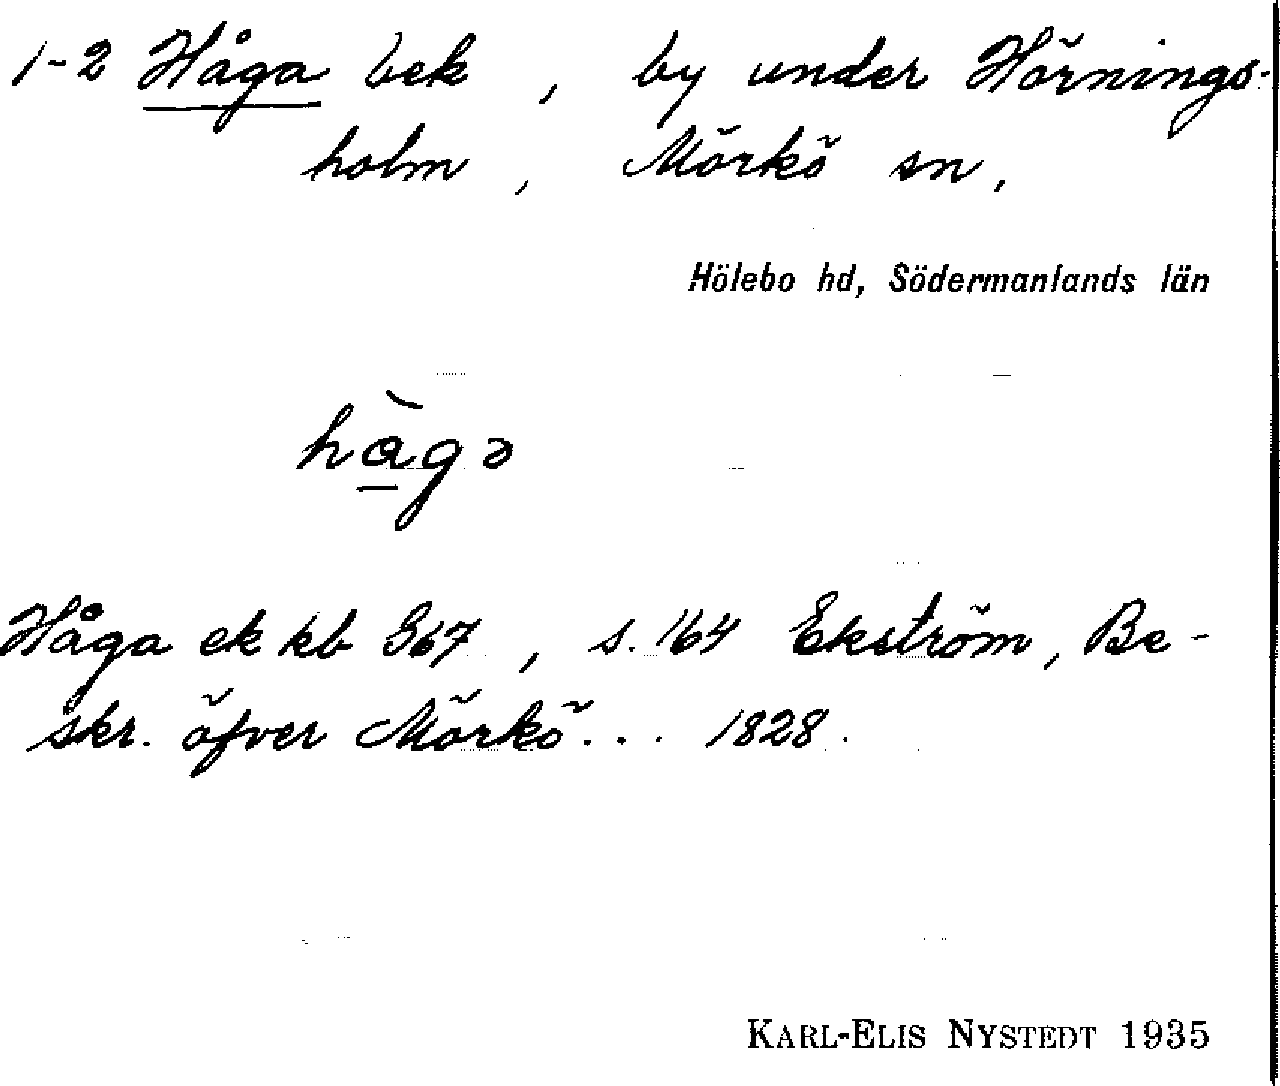 1-2 Håga bek , by under Hörnings-
holm , Mörkö sn.
Hölebo hd, Södermanlands län
hàgə
Håga ek kb G67 , s. 164 Ekström, Be-
skr. öfver Mörkö... 1828.
KARL-ELIS NYSTEDT 1935